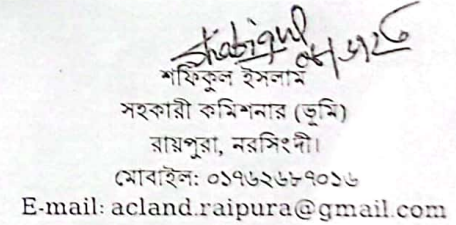 শফিকুল ইসলাম
সহকারী কমিশনার (ভূমি)
রায়পুরা, নরসিংদী।
মোবাইল: ০১৭৬২৬৮৭০১৬
E-mail: acland.raipura@gmail.com